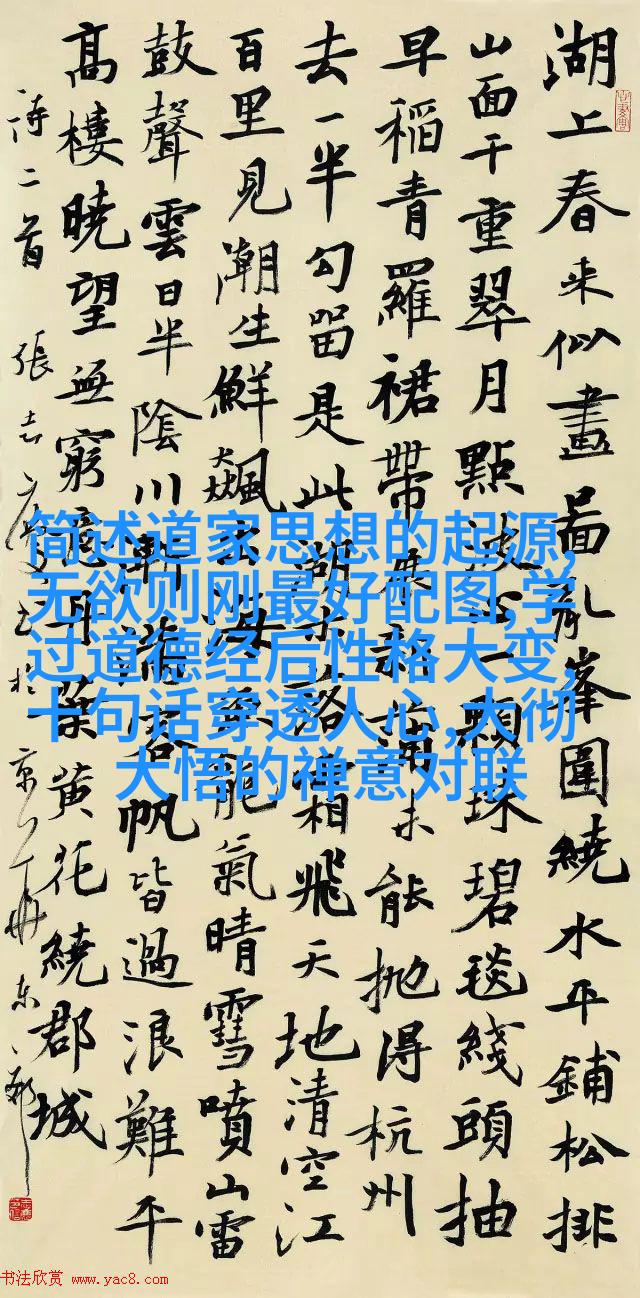 湖上春来似畫圖亂峯圍繞水平鋪松排
山面千重翠月點波心一顆珠碧毯綫頭抽
早稻青羅裙帶展新蒲未能抛得杭州
去一半勾留是此湖木落霜飛天地清空江
百里見潮生鮮飆出海魚龍氣晴雪噴山雷
鼓聲雲日半陰川漸滿客帆皆過浪難平
高樓曉望無窮意丹葉黄花繞郡城
詩二首 張志慶書於京
简述道家思想的起源,
无欲则刚最好配图,学
过道德经后性格大变,
十句话穿透人心,大彻
大悟的禅意对联
书法欣赏 www.yac8.com